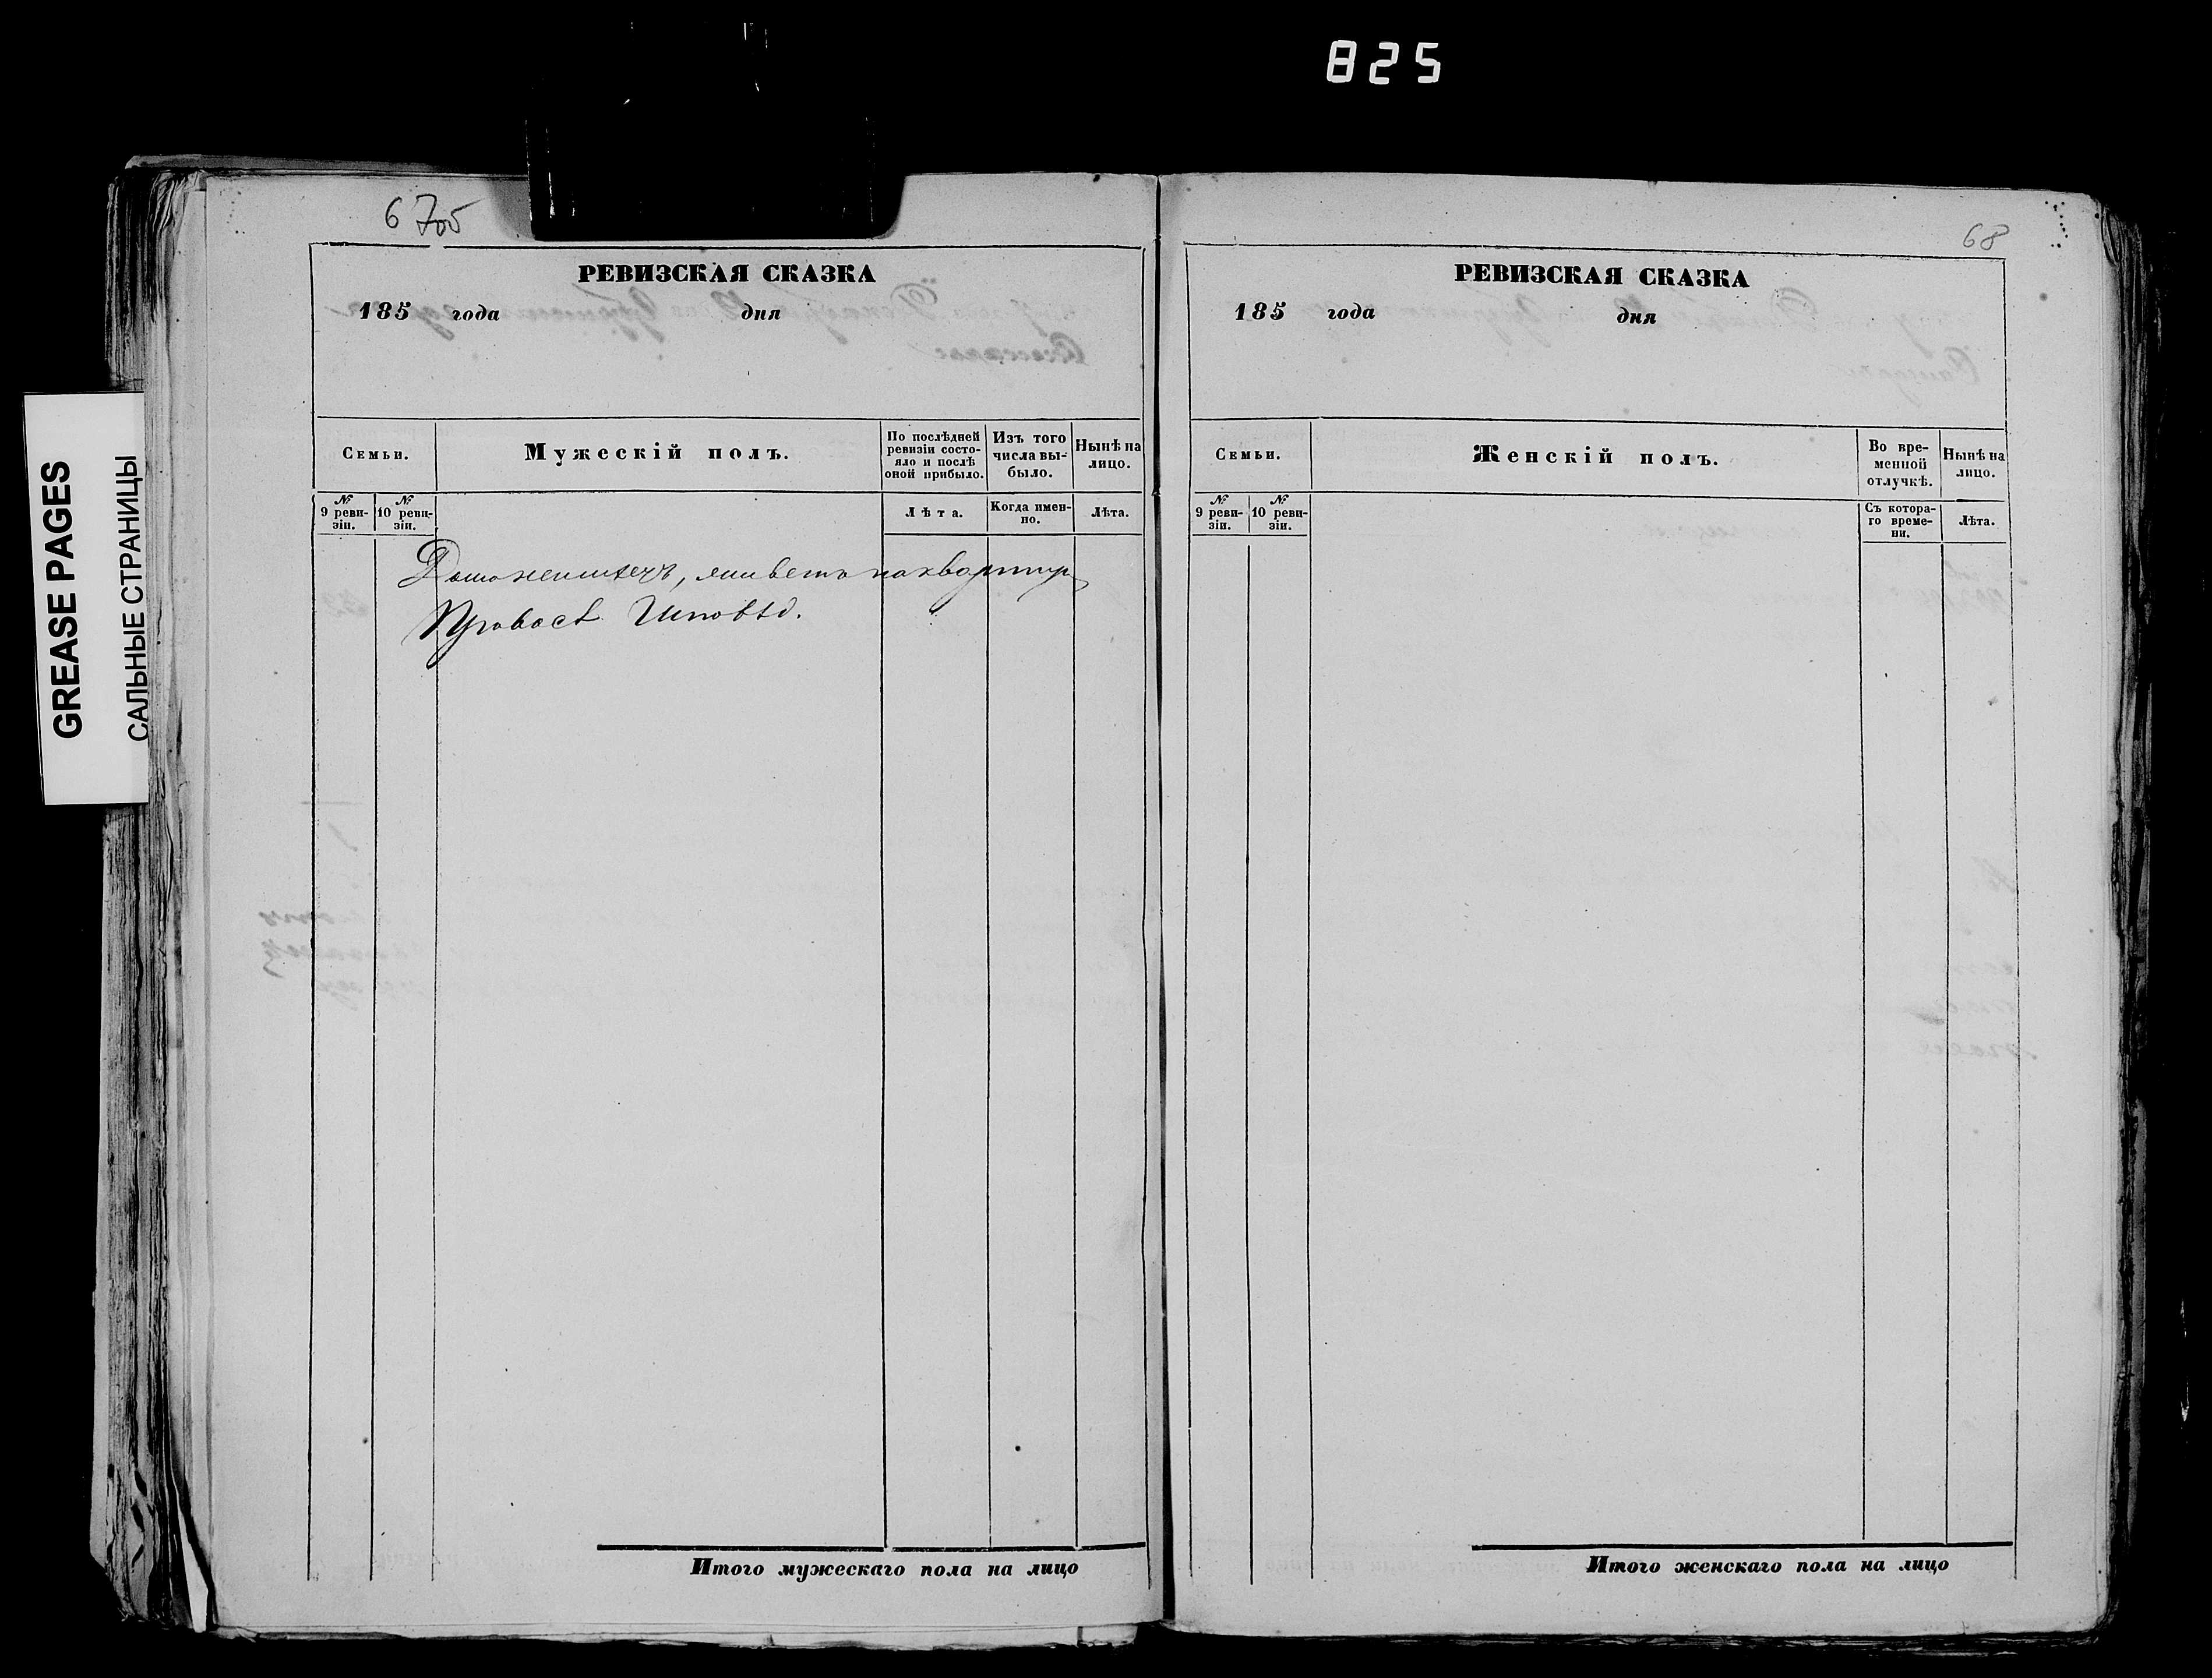 825
GREASE PAGES
САЛЬНЫЕ СТРАНИЦЫ
67об
РЕВИЗСКАЯ СКАЗКА
185 года дня
Семьи.
Мужескій полъ.
По послѣдней ревизіи состо-
яло и послѣ оной прибыло.
Изъ того числа вы-
было.
Нынѣ на лицо.
№ 9 реви-
зіи.
№ 10 реви-
зіи.
Лѣта.
Когда имен-
но.
Лѣта.
на квартир
Итого мужескаго пола на лицо
68
РЕВИЗСКАЯ СКАЗКА
185 года дня
Семьи.
Женскій полъ.
Во вре-
менной
отлучкѣ.
Нынѣ на
лицо.
№ 9 реви-
зіи.
№ 10 реви-
зіи.
Съ котора-
го време-
ни.
Лѣта.
Итого женскаго пола на лицо